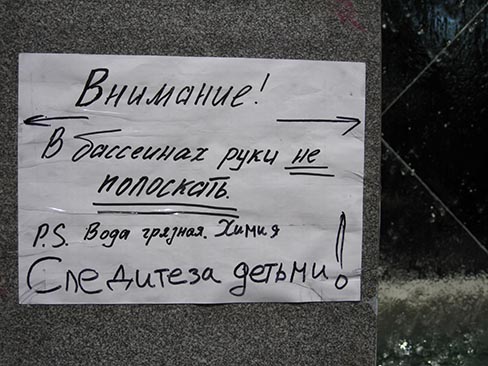 Внимание!
В бассеинах руки не
полоскать.
P.S. Вода грязная. Химия
Следитеза детьми!